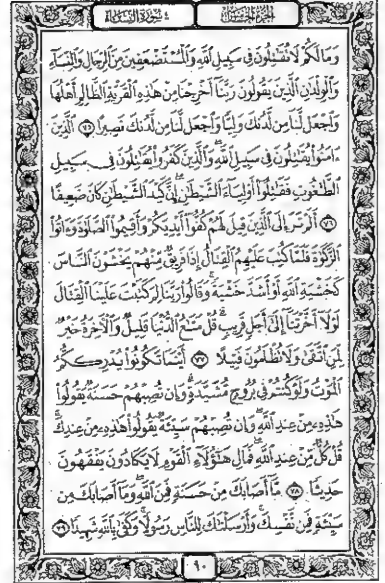 الجزء الخامس
سورة النساء
وَمَا لَكُمْ لَا تُقَٰتِلُونَ فِى سَبِيلِ ٱللَّهِ وَٱلْمُسْتَضْعَفِينَ مِنَ ٱلرِّجَالِ وَٱلنِّسَآءِ
وَٱلْوِلْدَٰنِ ٱلَّذِينَ يَقُولُونَ رَبَّنَآ أَخْرِجْنَا مِنْ هَٰذِهِ ٱلْقَرْيَةِ ٱلظَّالِمِ أَهْلُهَا
وَٱجْعَل لَّنَا مِن لَّدُنكَ وَلِيًّا وَٱجْعَل لَّنَا مِن لَّدُنكَ نَصِيرًا ٧٥ ٱلَّذِينَ
ءَامَنُوا۟ يُقَٰتِلُونَ فِى سَبِيلِ ٱللَّهِ وَٱلَّذِينَ كَفَرُوا۟ يُقَٰتِلُونَ فِى سَبِيلِ
ٱلطَّٰغُوتِ فَقَٰتِلُوٓا۟ أَوْلِيَآءَ ٱلشَّيْطَٰنِ إِنَّ كَيْدَ ٱلشَّيْطَٰنِ كَانَ ضَعِيفًا
٧٦ أَلَمْ تَرَ إِلَى ٱلَّذِينَ قِيلَ لَهُمْ كُفُّوٓا۟ أَيْدِيَكُمْ وَأَقِيمُوا۟ ٱلصَّلَوٰةَ وَءَاتُوا۟
ٱلزَّكَوٰةَ فَلَمَّا كُتِبَ عَلَيْهِمُ ٱلْقِتَالُ إِذَا فَرِيقٌ مِّنْهُمْ يَخْشَوْنَ ٱلنَّاسَ
كَخَشْيَةِ ٱللَّهِ أَوْ أَشَدَّ خَشْيَةً وَقَالُوا۟ رَبَّنَا لِمَ كَتَبْتَ عَلَيْنَا ٱلْقِتَالَ
لَوْلَآ أَخَّرْتَنَآ إِلَىٰٓ أَجَلٍ قَرِيبٍ قُلْ مَتَٰعُ ٱلدُّنْيَا قَلِيلٌ وَٱلْءَاخِرَةُ خَيْرٌ
لِّمَنِ ٱتَّقَىٰ وَلَا تُظْلَمُونَ فَتِيلًا ٧٧ أَيْنَمَا تَكُونُوا۟ يُدْرِككُّمُ
ٱلْمَوْتُ وَلَوْ كُنتُمْ فِى بُرُوجٍ مُّشَيَّدَةٍ وَإِن تُصِبْهُمْ حَسَنَةٌ يَقُولُوا۟
هَٰذِهِۦ مِنْ عِندِ ٱللَّهِ وَإِن تُصِبْهُمْ سَيِّئَةٌ يَقُولُوا۟ هَٰذِهِۦ مِنْ عِندِكَ
قُلْ كُلٌّ مِّنْ عِندِ ٱللَّهِ فَمَالِ هَٰٓؤُلَآءِ ٱلْقَوْمِ لَا يَكَادُونَ يَفْقَهُونَ
حَدِيثًا ٧٨ مَّآ أَصَابَكَ مِنْ حَسَنَةٍ فَمِنَ ٱللَّهِ وَمَآ أَصَابَكَ مِن
سَيِّئَةٍ فَمِن نَّفْسِكَ وَأَرْسَلْنَٰكَ لِلنَّاسِ رَسُولًا وَكَفَىٰ بِٱللَّهِ شَهِيدًا ٧٩
٩٠